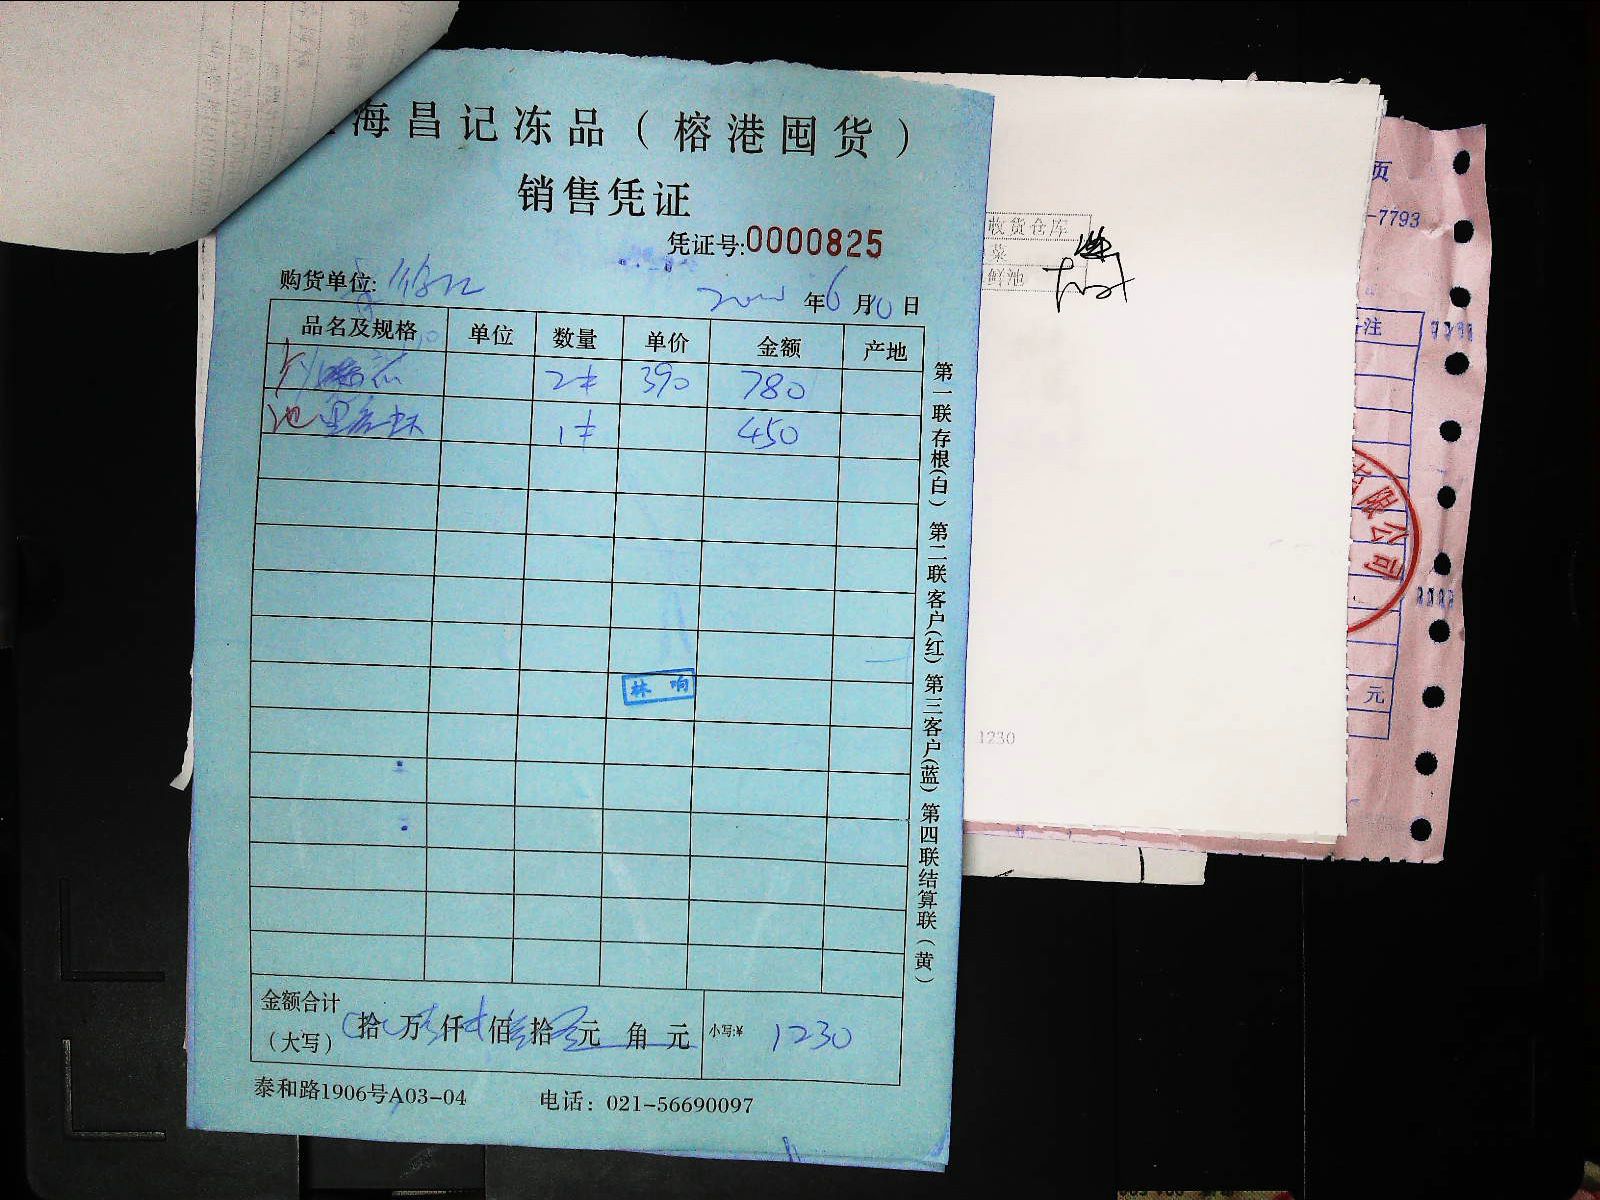 海昌记冻品（榕港囤货）
销售凭证
凭证号:0000825
购货单位:
年6月10日
品名及规格 单位 数量 单价 金额 产地
2 390 780
池 1 450
林 响
金额合计
（大写） 拾 万 仟 佰 拾 元 角 元 小写:¥ 1230
泰和路1906号A03-04 电话：021-56690097
第一联存根(白) 第二联客户(红) 第三客户(蓝) 第四联结算联(黄)
收货仓库
菜
鲜池
1230
页
-7793
注
公司
元